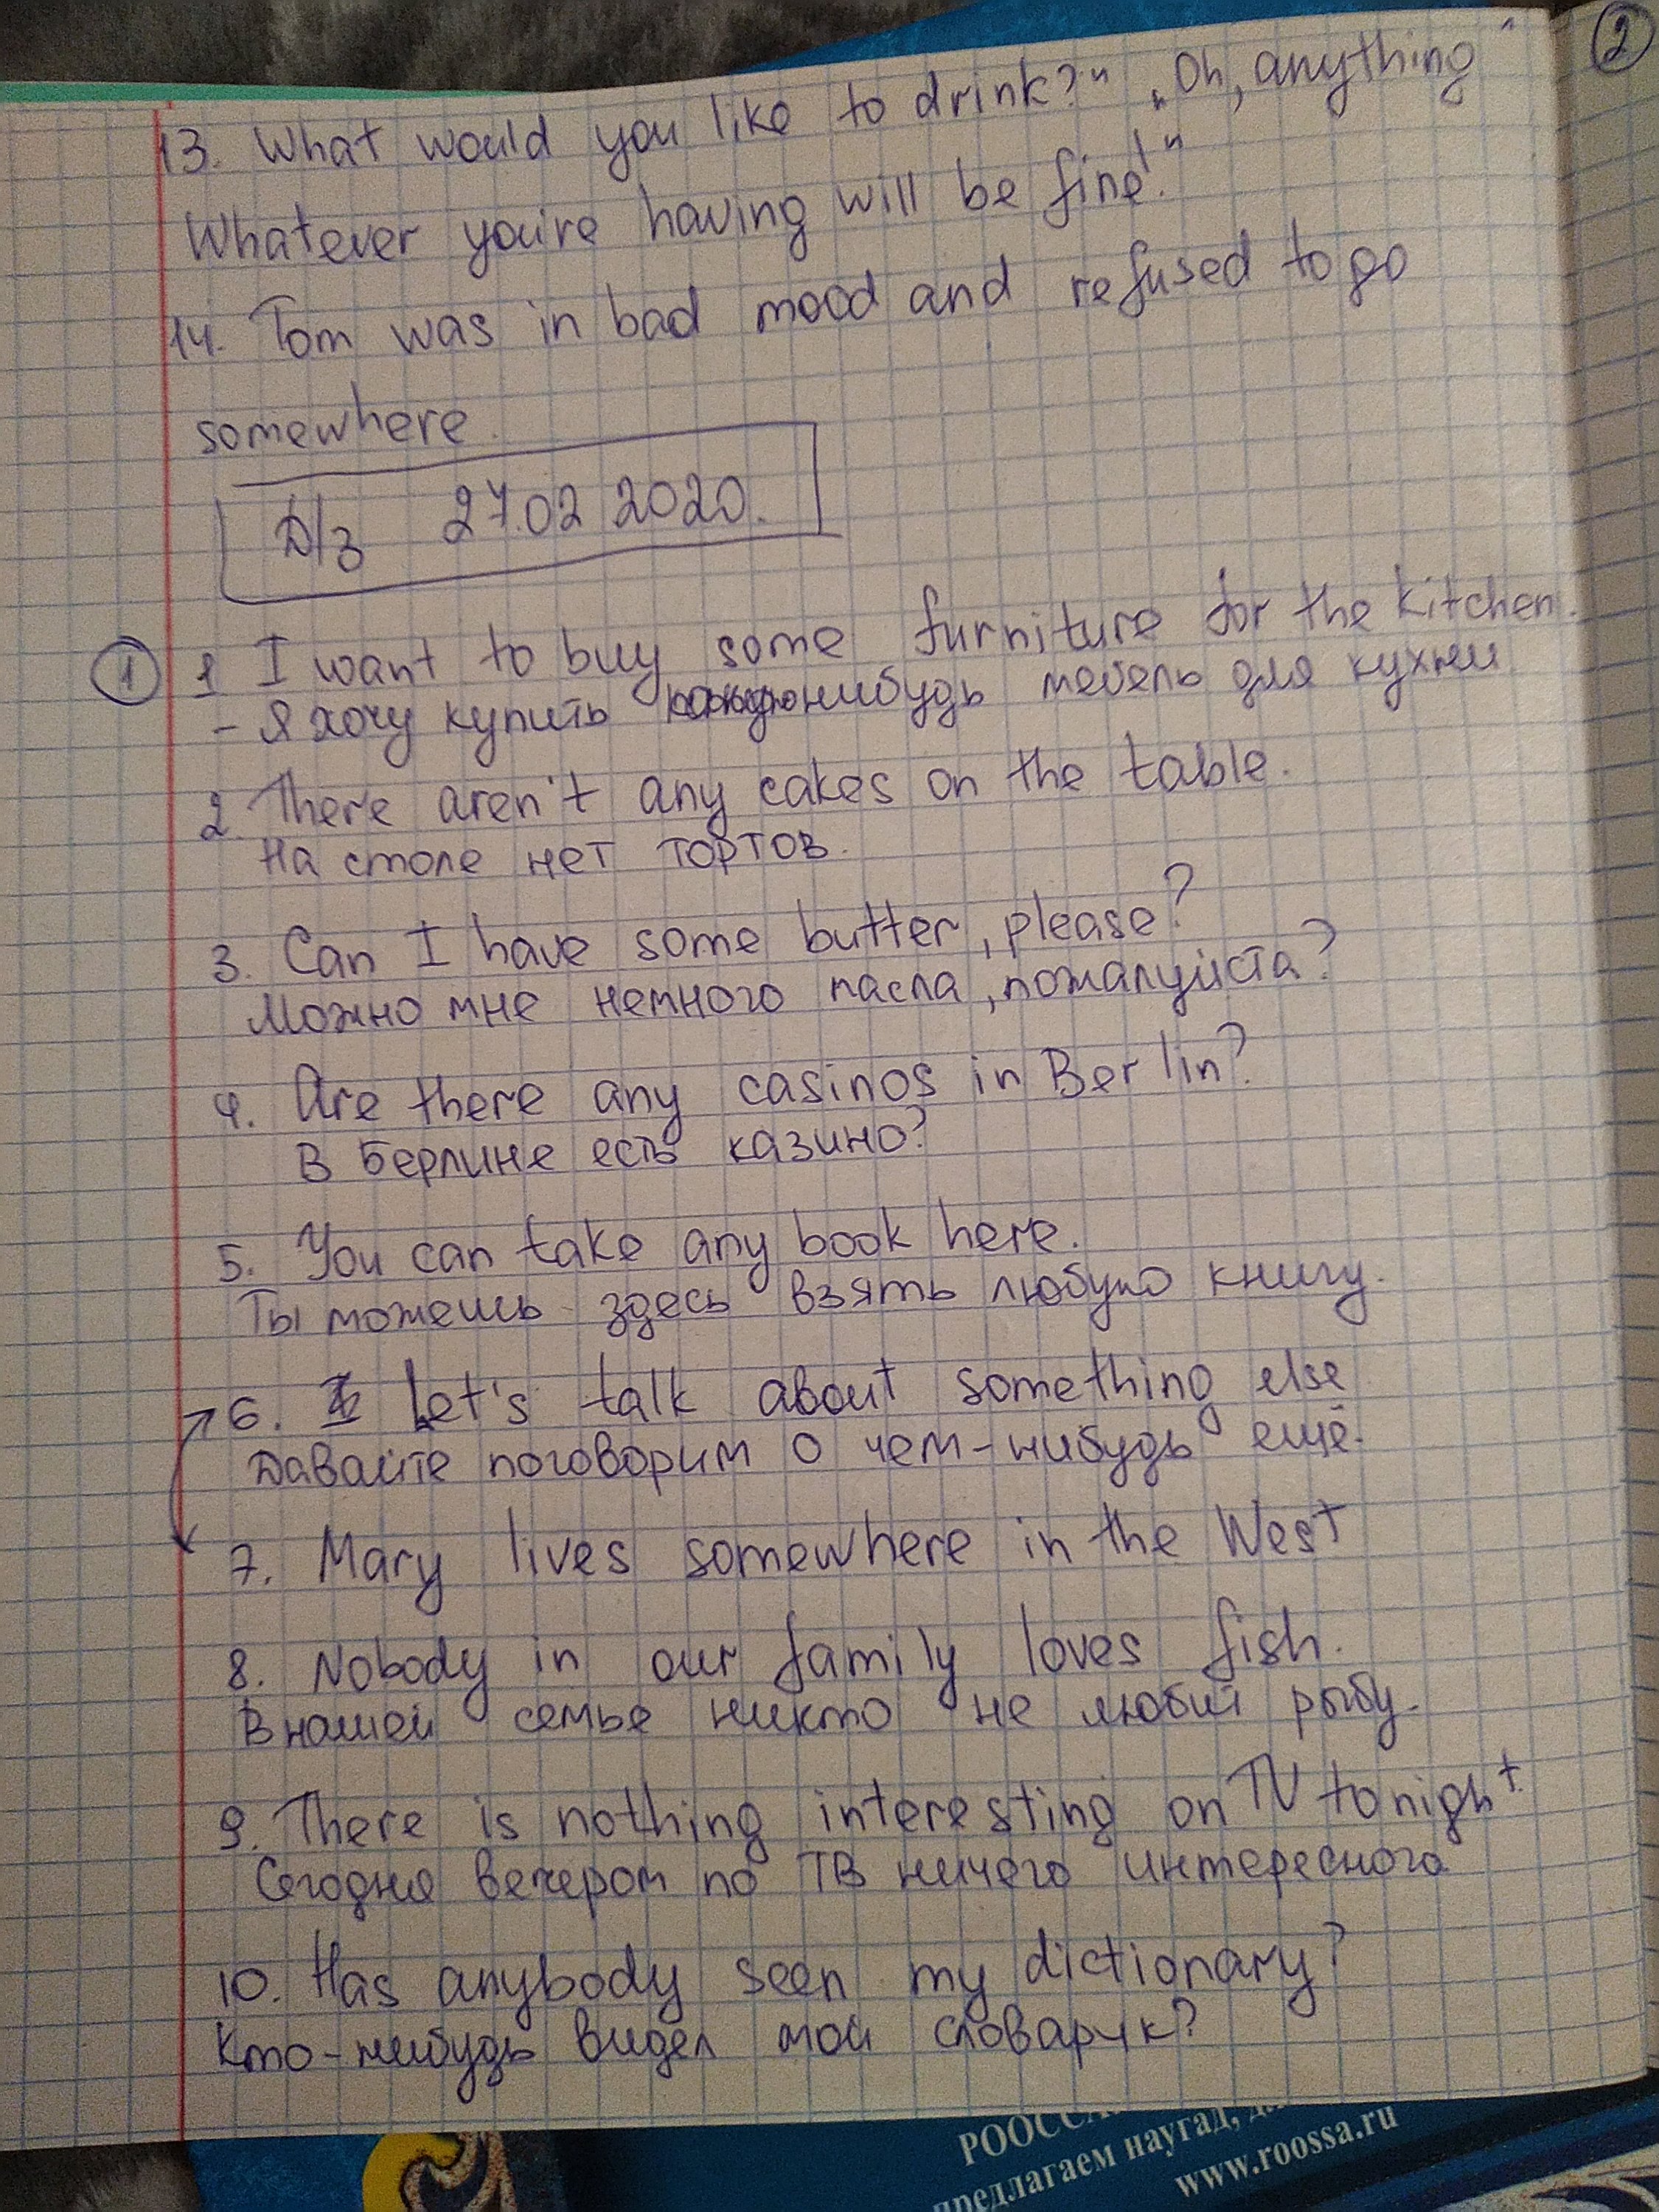 2
13. What would you like to drink?" „Oh, anything"
Whatever you're having will be fine!"
14. Tom was in bad mood and refused to go
somewhere.
Д/з 27.02 2020.
1 1 I want to buy some furniture for the kitchen.
- Я хочу купить какую нибудь мебель для кухни
2 There aren't any cakes on the table.
На столе нет тортов.
3. Can I have some butter, please?
Можно мне немного масла, пожалуйста?
4. Are there any casinos in Berlin?
В Берлине есть казино?
5. You can take any book here.
Ты можешь здесь взять любую книгу.
6. Let's talk about something else
Давайте поговорим о чем-нибудь ещё.
7. Mary lives somewhere in the West
8. Nobody in our family loves fish.
В нашей семье никто не любит рыбу.
9. There is nothing interesting on TV tonight.
Сегодня вечером по ТВ ничего интересного
10. Has anybody seen my dictionary?
Кто-нибудь видел мой словарик?
РООССА
предлагаем наугад,
www.roossa.ru